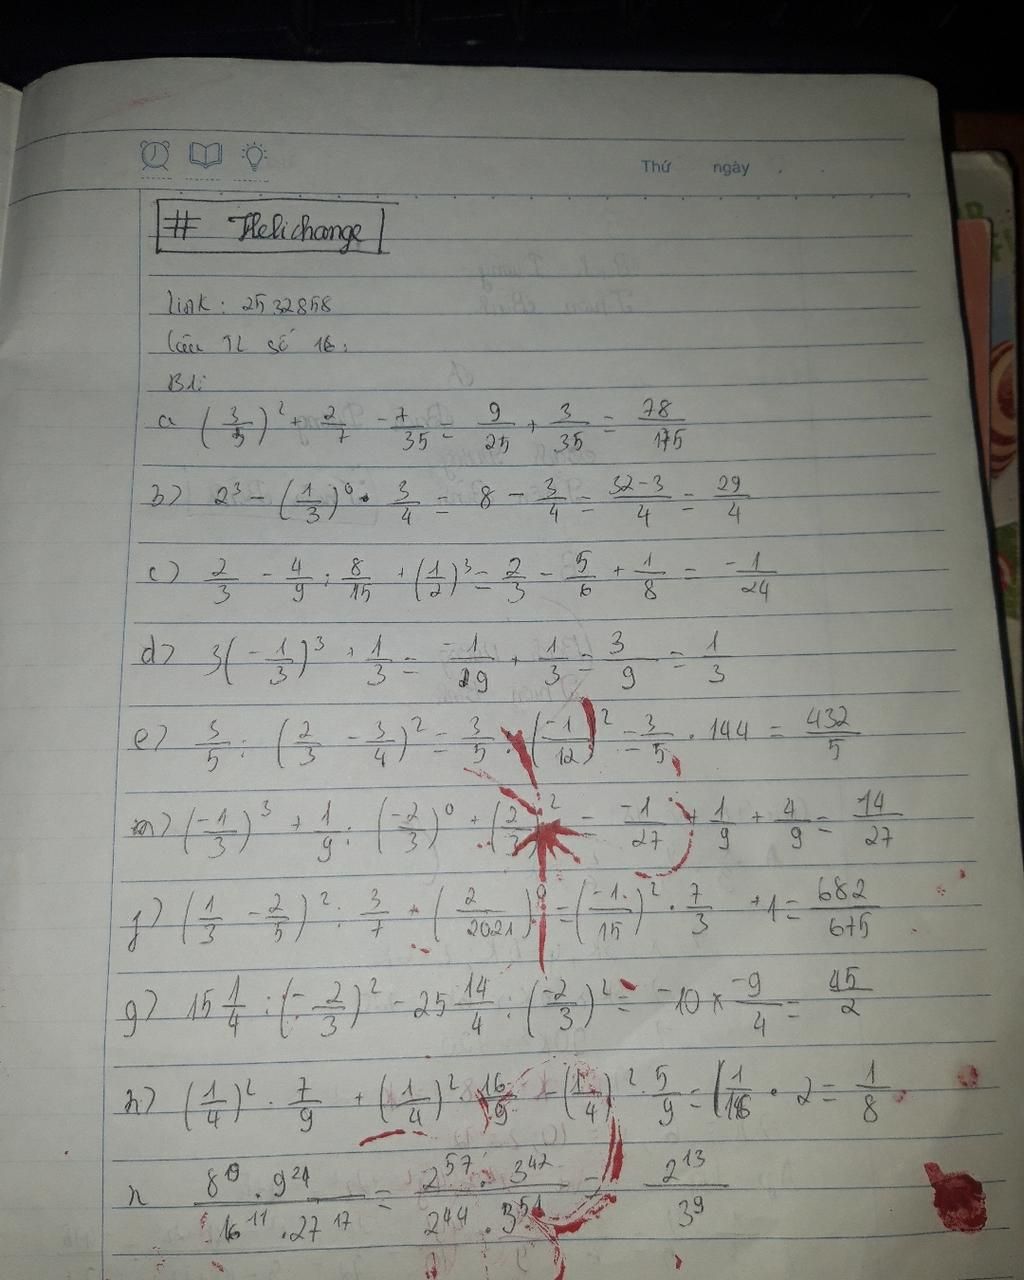 Thứ ngày
# Helichange
link: 2532858
Câu TL số 16:
B1:
a (3/5)² + 2/7 - 7/35 = 9/25 + 3/35 = 78/175
b) 2³ - (1/3)⁰ · 3/4 = 8 - 3/4 = 32-3/4 = 29/4
c) 2/3 - 4/9 : 8/15 + (1/2)³ = 2/3 - 5/6 + 1/8 = -1/24
d) 3(-1/3)³ + 1/3 = -1/9 + 1/3 = 3/9 = 1/3
e) 3/5 : (2/3 - 3/4)² = 3/5 : (-1/12)² = 3/5 · 144 = 432/5
m) (-1/3)³ + 1/9 : (-2/3)⁰ + (2/3)² = -1/27 + 1/9 + 4/9 = 14/27
f) (1/3 - 2/5)² : 3/7 + (2/2021)⁰ = (-1/15)² · 7/3 + 1 = 682/675
g) 15 1/4 : (-2/3)² - 25 14/4 : (-2/3)² = -10 × -9/4 = 45/2
h) (1/4)² · 7/9 + (1/4)² · 16/9 - (1/4)² · 5/9 = 1/16 · 2 = 1/8
n 8¹⁹ · 9²¹ / 16¹¹ · 27¹⁷ = 2⁵⁷ · 3⁴² / 2⁴⁴ · 3⁵¹ = 2¹³ / 3⁹